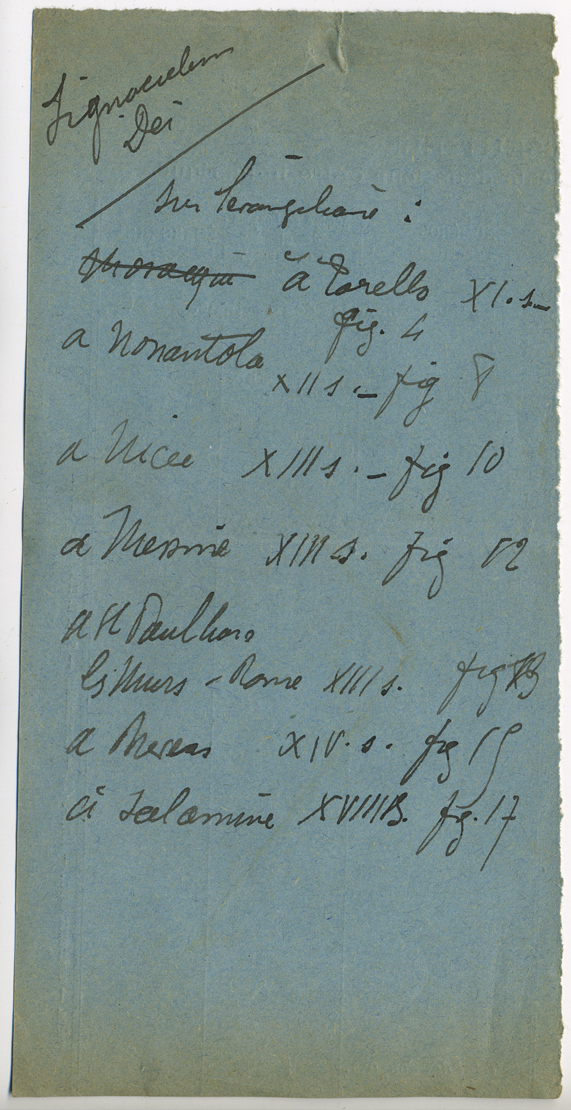 Signaculum
Dei
sur l'évangéliaire :
à Torello XI. s.
fig. 4
a Nonantola
XII s. _ fig 8
a Nicée XIII s. _ fig 10
a Messine XIII s. fig 12
a St Paul hors
les Murs - Rome XIII s. fig 13
a XIV. s. fig 15
à Salamine XVIII s. fig. 17